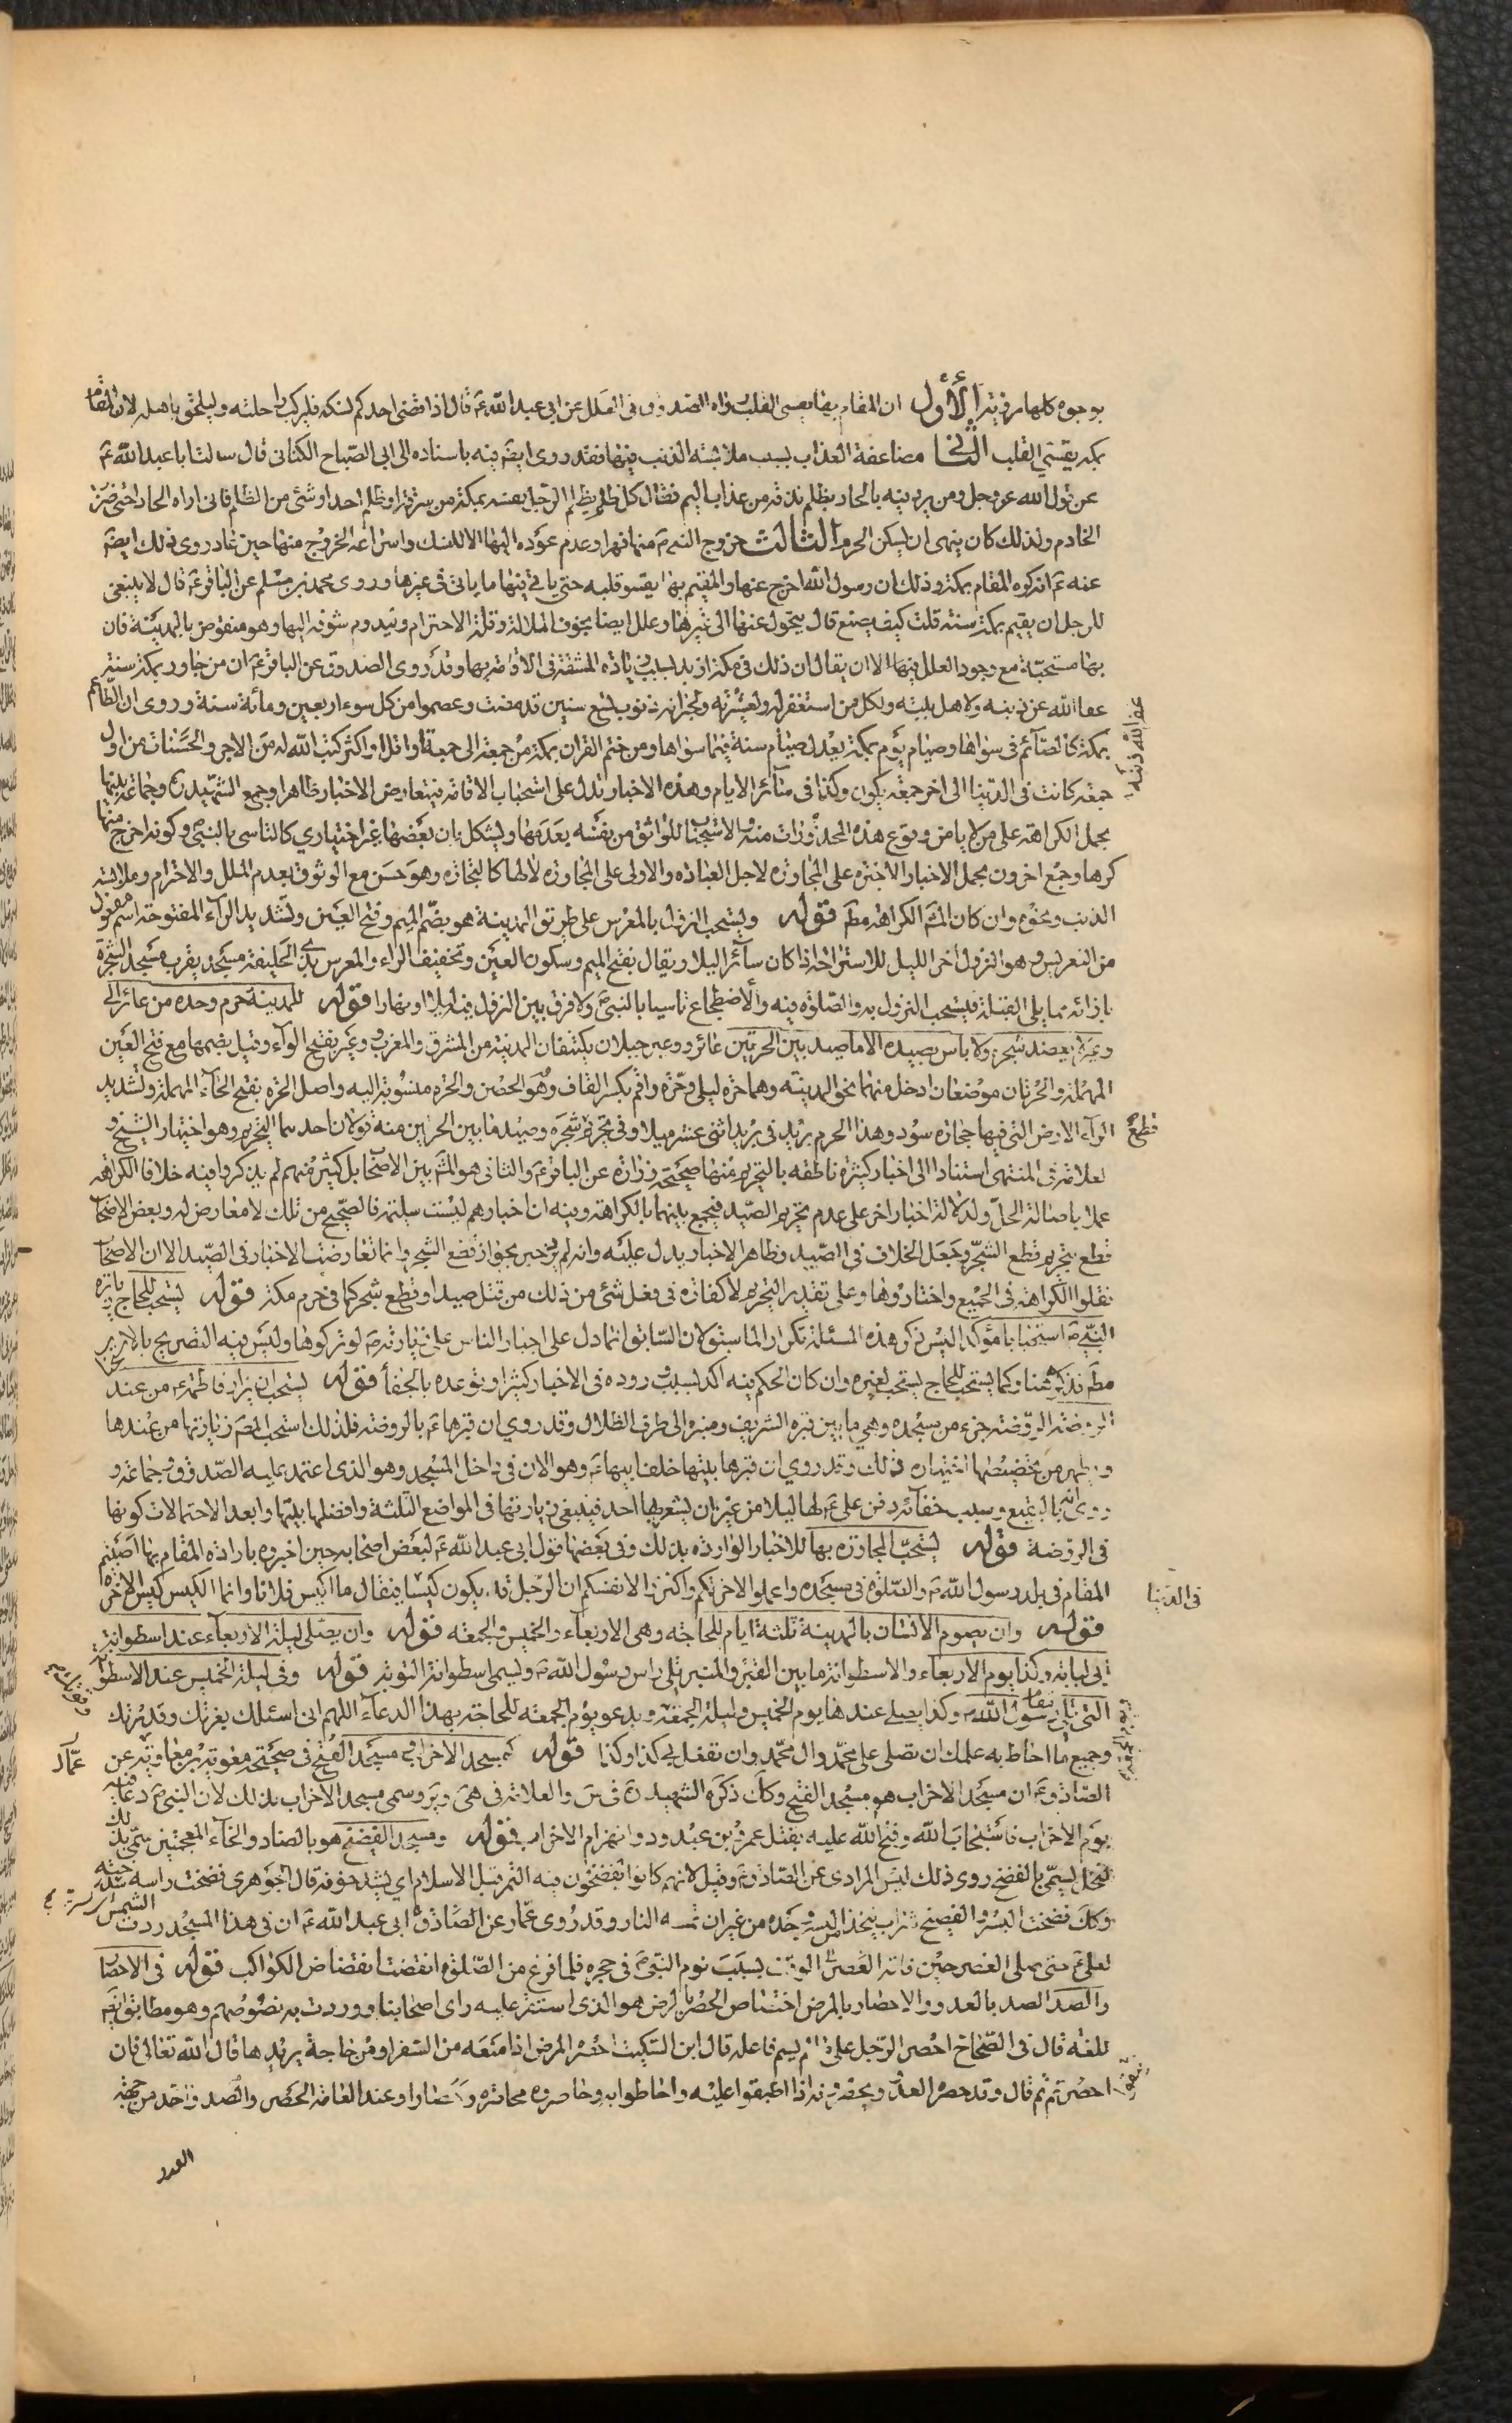 بوجوه كلها مرفية الأول ان المقام بها يقسى القلب رواه الصدوق فى العلل عن ابى عبد الله ع قال اذا قضى احدكم نسكه فليركب راحلته وليلحق باهله لان المقام
بمكة يقسى القلب الثانى مضاعفة العذاب بسبب ملابسة الذنب فيها فقد روى ايضا فيه باسناده الى ابى الصباح الكنانى قال سالت ابا عبد الله ع
عن قول الله عز وجل ومن يرد فيه بالحاد بظلم نذقه من عذاب اليم فقال كل ظلم يظلم الرجل نفسه بمكة من سرقة او ظلم احد او شئ من الظلم فانى اراه الحادا حتى ضرب
الخادم ولذلك كان ينهى ان يسكن الحرم الثالث خروج النبى ص منها قهرا وعدم عوده اليها الا للنسك واسراعه الخروج منها حين عاد روى ذلك ايضا
عنه ع انه كره المقام بمكة وذلك ان رسول الله اخرج عنها والمقيم بها يقسو قلبه حتى ياتى فيها ما ياتى فى غيرها وروى محمد بن مسلم عن الباقر ع قال لا ينبغى
للرجل ان يقيم بمكة سنة قلت كيف يصنع قال يتحول عنها الى غيرها وعلل ايضا بخوف الملالة وقلة الاحترام وليدوم شوقه اليها وهو منقوض بالمدينة فان
بها مستحبة مع وجود العلل فيها الا ان يقال ان ذلك فى مكة ازيد لسبب زيادة المشقة فى الاقامة بها وقد روى الصدوق عن الباقر ع ان من جاور بمكة سنة
عفا الله عن ذنبه ولاهل بيته ولكل من استغفر له ولعشيرته ولجيرانه ذنوب تسع سنين قد مضت وعصموا من كل سوء اربعين ومائة سنة وروى ان الطاعم
بمكة كالصائم فى سواها وصيام يوم بمكة يعدل صيام سنة فيما سواها ومن ختم القران بمكة من جمعة الى جمعة او اقل او اكثر كتب الله له من الاجر والحسنات من اول
جمعة كانت فى الدنيا الى اخر جمعة يكون وكذا فى سائر الايام وهذه الاخبار تدل على استحباب الاقامة فيتعارض الاخبار ظاهرا وجمع الشهيد ره وجماعة بينها
بحمل الكراهة على من لا يامن وقوع هذه المحذورات منه والاستحباب للواثق من نفسه بعدمها ويشكل بان بعضها غير اختيارى كالتاسى بالنبى وكونه اخرج منها
كرها وجمع اخرون بحمل الاخبار الاخيرة على المجاورة لاجل العبادة والاولى على المجاورة لا لها كالتجارة وهو حسن مع الوثوق بعدم الملل والاحترام وملابسة
الذنب ونحوه وان كان المشهور الكراهة مطلقا قوله ويستحب النزول بالمعرس على طريق المدينة هو بضم الميم وفتح العين وتشديد الراء المفتوحة اسم مفعول
من التعريس وهو النزول اخر الليل للاستراحة اذا كان سائرا ليلا ويقال بفتح الميم وسكون العين وتخفيف الراء والمعرس بذى الحليفة مسجد بقرب مسجد الشجرة
بازائه مما يلى القبلة فيستحب النزول به والصلوة فيه والاضطجاع تاسيا بالنبى ص ولا فرق بين النزول فيه ليلا او نهارا قوله للمدينة حرم وحده من عائر الى
وعير لا يعضد شجره ولا باس بصيده الا ما صيد بين الحرتين عائر ووعير جبلان يكتنفان المدينة من المشرق والمغرب وعير بفتح الواو وقيل بضمها مع فتح العين
المهملة والحرتان موضعان ادخل منهما نحو المدينة وهما حرة ليلى وحرة واقم بكسر القاف وهو الحصن والحرة منسوبة اليه واصل الحرة بفتح الحاء المهملة وتشديد
الراء الارض التى فيها حجارة سود وهذا الحرم بريد فى بريد اثنى عشر ميلا وفى تحريم شجره وصيد ما بين الحرتين منه قولان احدهما التحريم وهو اختيار الشيخ و
العلامة فى المنتهى استنادا الى اخبار كثيرة ناطقة بالتحريم منها صحيحة زرارة عن الباقر ع والثانى هو المشهور بين الاصحاب بل كثير منهم لم يذكروا فيه خلافا الكراهة
عملا باصالة الحل ولدلالة اخبار اخر على عدم تحريم الصيد فيجمع بينهما بالكراهة وفيه ان اخبارهم ليست سليمة فالصحيح من تلك لا معارض له وبعض الاصحاب
قطع بتحريم قطع الشجر وجعل الخلاف فى الصيد وظاهر الاخبار يدل عليه وانه لم يرد خبر بجواز قطع الشجر وانما تعارضت الاخبار فى الصيد الا ان الاصحاب
نقلوا الكراهة فى الجميع واختاروها وعلى تقدير التحريم لا كفارة فى فعل شئ من ذلك من قتل صيد او قطع شجر كما فى حرم مكة قوله يستحب للحاج زيارة
النبى ص استحبابا مؤكدا ليس ذكر هذه المسئلة تكرارا لما سبق لان السابق انما دل على اجبار الناس على زيارته ص لو تركوها وليس فيه التصريح بالامر بها
مطلقا فذكره هنا وكما يستحب للحاج يستحب لغيره وان كان الحكم فيه اكد لسبب وروده فى الاخبار كثيرا وتوعده بالجفا قوله يستحب ان يزار فاطمة ع من عند
الروضة الروضة جزء من مسجده وهى ما بين قبره الشريف ومنبره الى طرف الظلال وقد روى ان قبرها ع بالروضة فلذلك استحب المص زيارتها من عندها
ويظهر من تخصيصها اختياره ذلك وقد روى ان قبرها بيتها خلف ابيها ص وهو الان فى داخل المسجد وهو الذى اعتمد عليه الصدوق وجماعة و
روى انه بالبقيع وسبب خفائه دفن على ع لها ليلا من غير ان يشعر بها احد فينبغى زيارتها فى المواضع الثلثة وافضلها بيتها وابعد الاحتمالات كونها
فى الروضة قوله يستحب المجاورة بها للاخبار الواردة بذلك وفى بعضها قول ابى عبد الله ع لبعض اصحابه حين اخبروه بارادة المقام بها اصبتم
المقام فى بلد رسول الله ص والصلوة فى مسجده واعملوا لاخرتكم واكثروا لانفسكم ان الرجل قد يكون كيسا فيقال ما اكيس فلانا وانما الكيس كيس الاخرة
فى الدنيا
قوله وان يصوم الانسان بالمدينة ثلثة ايام للحاجة وهى الاربعاء والخميس والجمعة قوله وان يصلى ليلة الاربعاء عند اسطوانة
ابى لبابة وكذا يوم الاربعاء والاسطوانة ما بين القبر والمنبر تلى راس رسول الله ص ويسمى اسطوانة التوبة قوله وفى ليلة الخميس عند الاسطوانة
التى تلى مقام رسول الله ص وكذا يصلى عندها يوم الخميس وليلة الجمعة ويدعو يوم الجمعة للحاجة بهذا الدعاء اللهم انى اسئلك بعزتك وقدرتك
وجميع ما احاط به علمك ان تصلى على محمد وال محمد وان تفعل بى كذا وكذا قوله كمسجد الاحزاب هو مسجد الفتح فى صحيحة معوية بن معاوية عن
عمار
الصادق ع ان مسجد الاحزاب هو مسجد الفتح وكذلك ذكره الشهيد ره فى س والعلامة فى هى وير وسمى مسجد الاحزاب بذلك لان النبى ص دعا فيه
يوم الاحزاب فاستجاب الله وفتح الله عليه بقتل عمرو بن عبدود وانهزام الاحزاب قوله ومسجد الفضيخ هو بالضاد والخاء المعجمتين سمى بذلك
لنخل يسمى بالفضيخ روى ذلك ليث المرادى عن الصادق ع وقيل لانهم كانوا يفضخون فيه التمر قبل الاسلام اى يشدخونه قال الجوهرى فضخت راسه شدخته
وكذلك فضخت البسر والفضيخ شراب يتخذ من البسر وحده من غير ان تمسه النار وقد روى عمار عن الصادق ابى عبد الله ع ان فى هذا المسجد ردت الشمس
لعلى ع حتى صلى العصر حين فاته العصر الوقت بسبب نوم النبى ص فى حجره فلما فرغ من الصلوة انقضت انقضاض الكواكب قوله فى الاحصار
والصد الصد بالعدو والاحصار بالمرض اختصاص الحصر بالمرض هو الذى استقر عليه راى اصحابنا ووردت به نصوصهم وهو مطابق ايضا
للغة قال فى الصحاح احصر الرجل على ما لم يسم فاعله قال ابن السكيت احصره المرض اذا منعه من السفر او من حاجة يريدها قال الله تعالى فان
احصرتم ثم قال وقد حصره العدو يحصرونه اذا اطبقوا عليه واحاطوا به وحاصروه محاصرة وحصارا وعند العامة الحصر والصد واحد من جهة
العدو